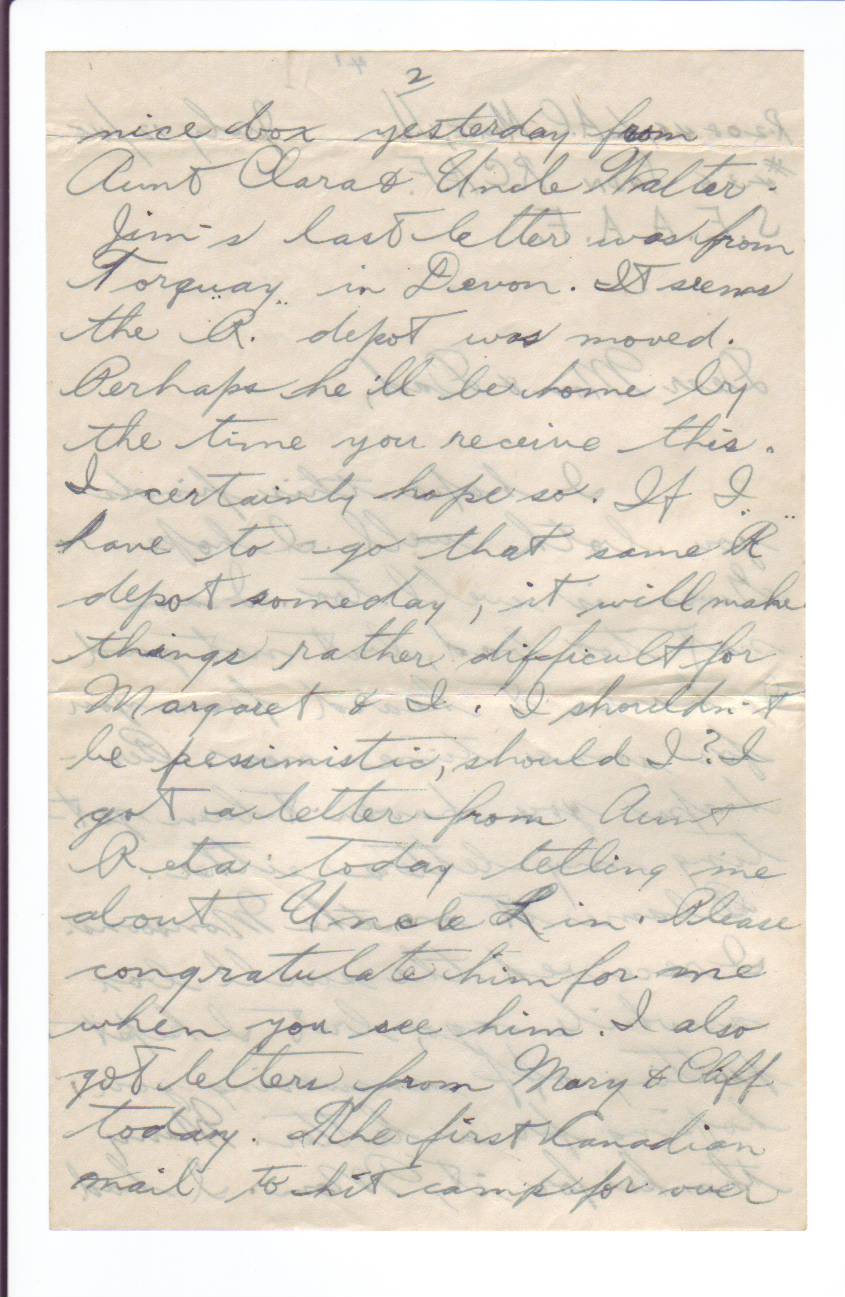 2
nice box yesterday from
Aunt Clara & Uncle Walter.
Jim's last letter was from
Torquay in Devon. It seems
the "R" depot was moved.
Perhaps he'll be home by
the time you receive this.
I certainly hope so. If I
have to go that same "R"
depot someday, it will make
things rather difficult for
Margaret & I. I shouldn't
be pessimistic, should I? I
got a letter from Aunt
Reta today telling me
about Uncle Lin. Please
congratulate him for me
when you see him. I also
got letters from Mary & Cliff
today. The first Canadian
mail to hit camp for over